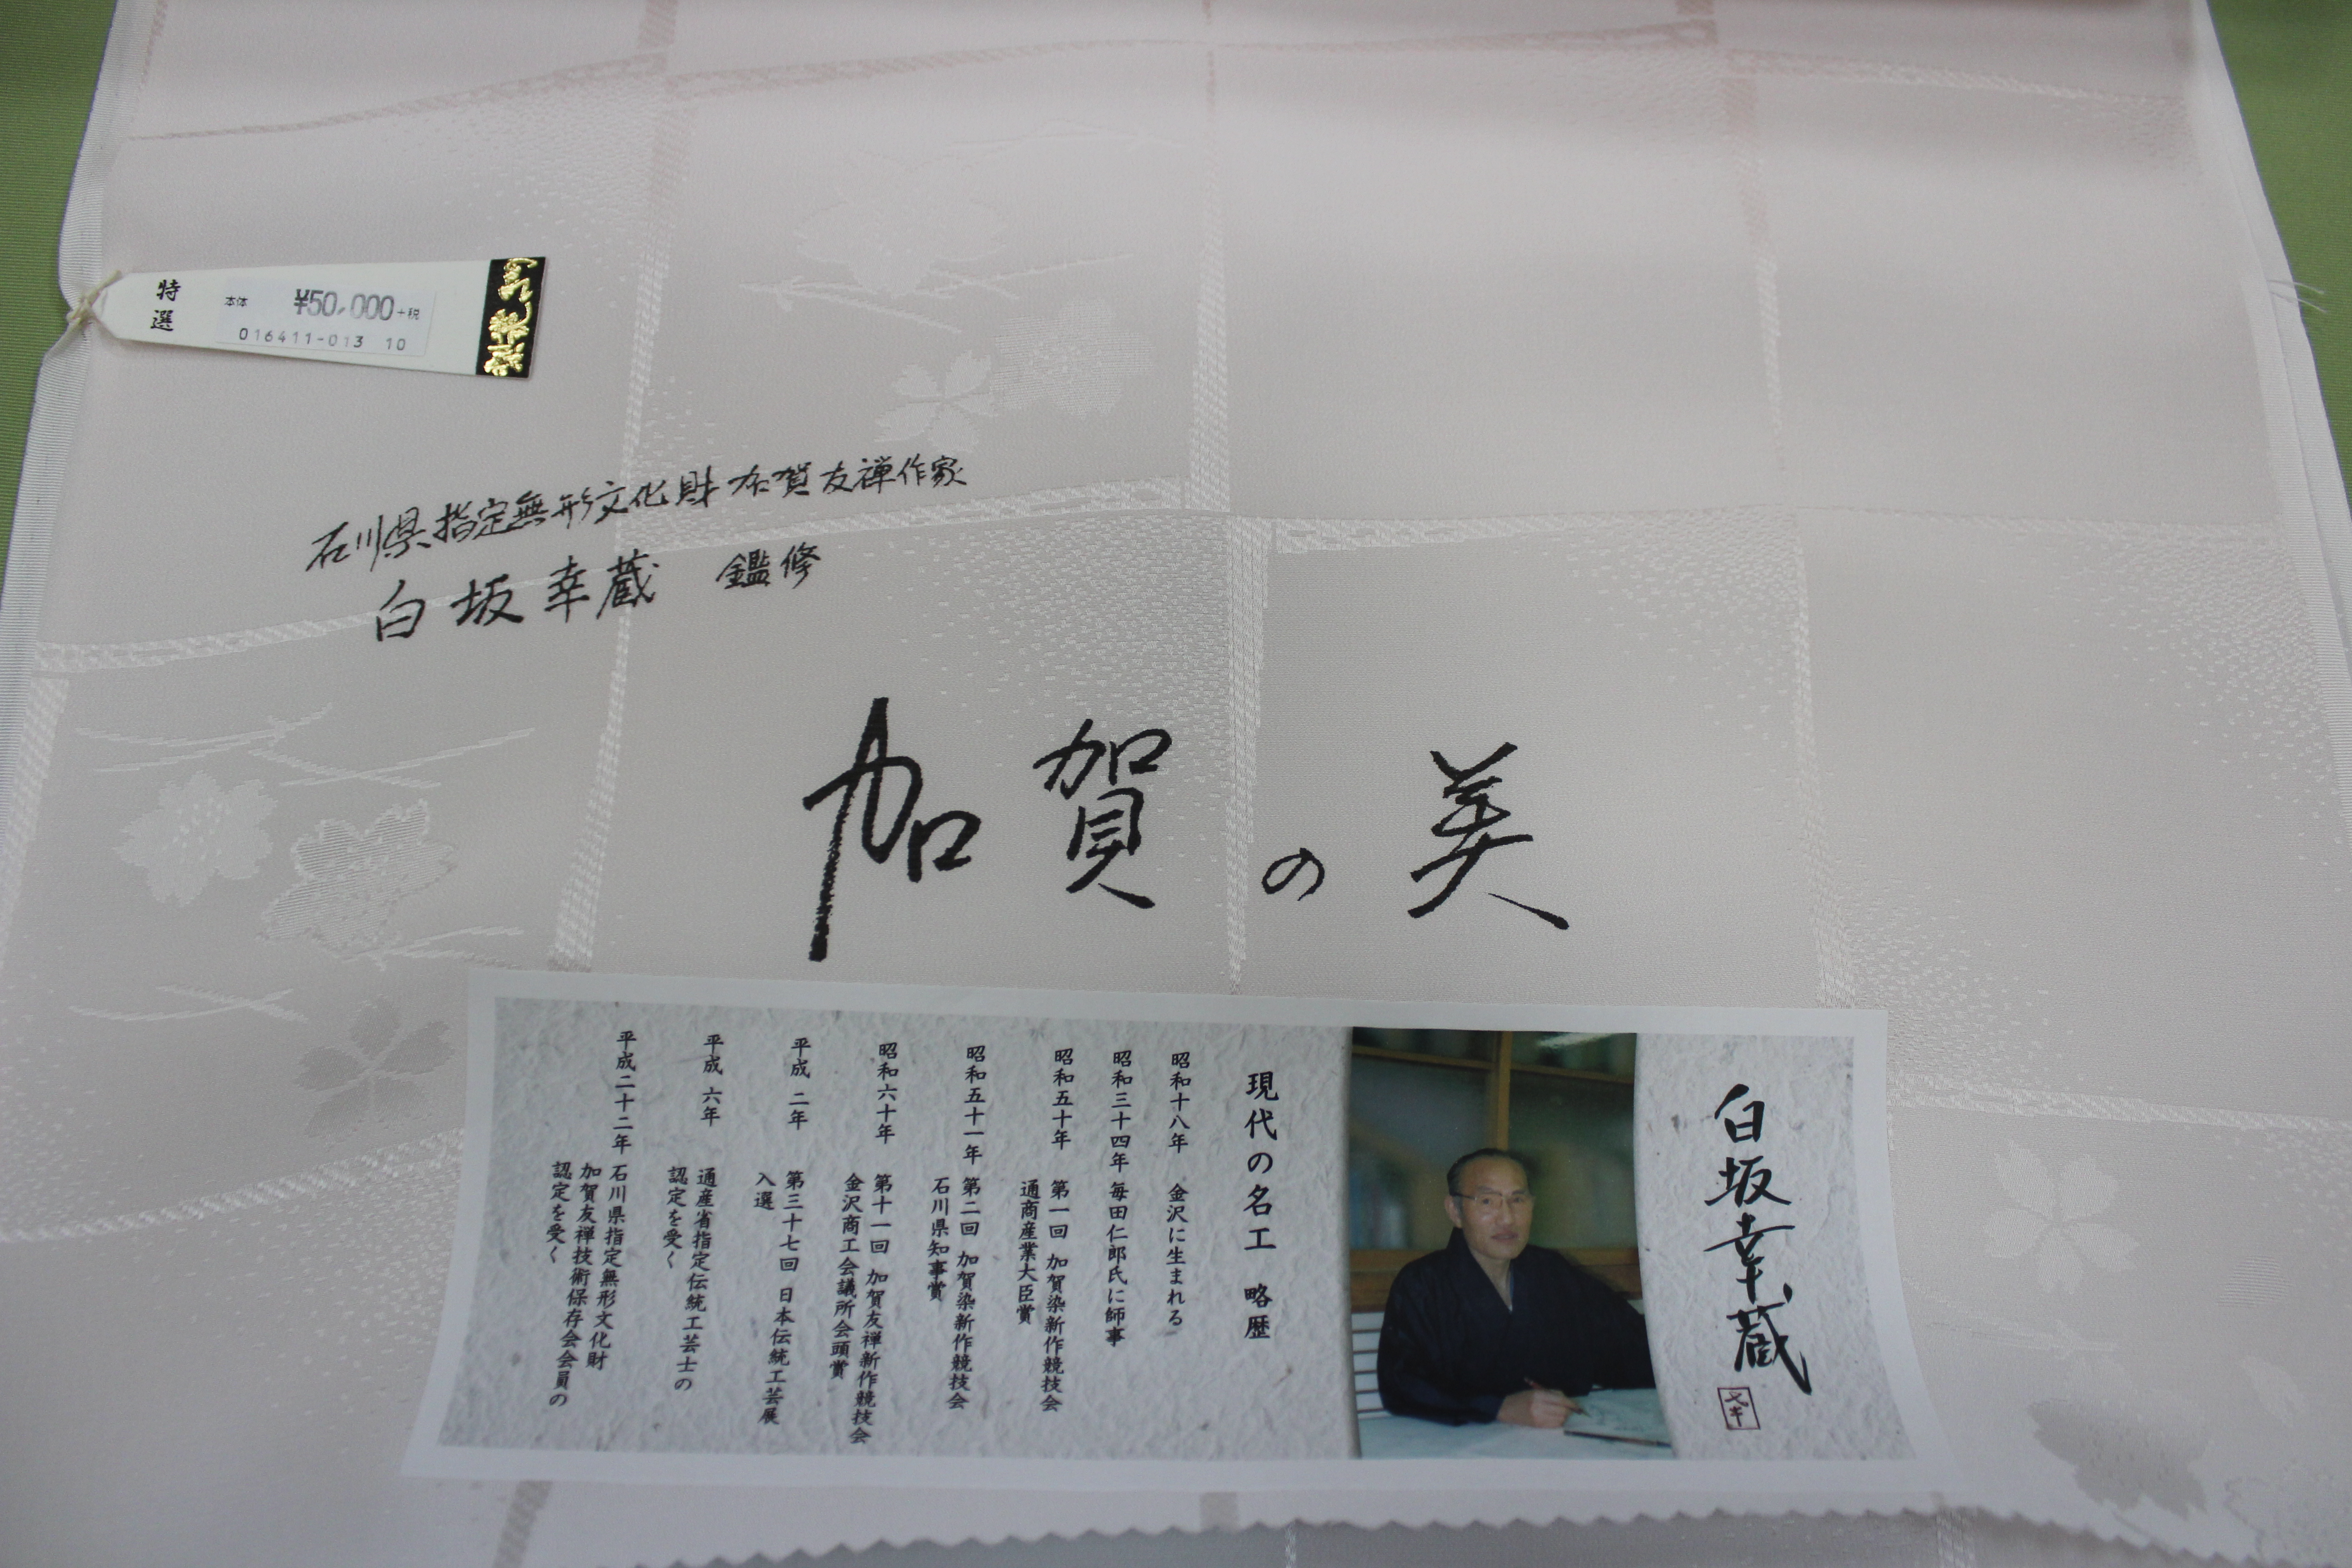 特選
本体 ¥50,000+税
016411-013 10
石川県指定無形文化財加賀友禅作家
白坂幸蔵 鑑修
加賀の美
白坂幸蔵
現代の名工 略歴
昭和十八年 金沢に生まれる
昭和三十四年 毎田仁郎氏に師事
昭和五十年 第一回 加賀染新作競技会
通商産業大臣賞
昭和五十一年 第二回 加賀染新作競技会
石川県知事賞
昭和六十年 第十一回 加賀友禅新作競技会
金沢商工会議所会頭賞
平成 二年 第三十七回 日本伝統工芸展
入選
平成 六年 通産省指定伝統工芸士の
認定を受く
平成二十二年 石川県指定無形文化財
加賀友禅技術保存会会員の
認定を受く